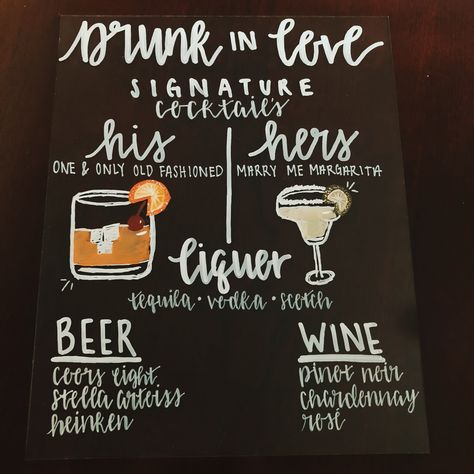 Drunk IN Love
SIGNATURE
cocktail's
his
ONE & ONLY OLD FASHIONED
hers
MARRY ME MARGARITA
liquer
tequila · vodka · scotch
BEER
coors light
stella artoiss
heinken
WINE
pinot noir
chardonnay
rosé